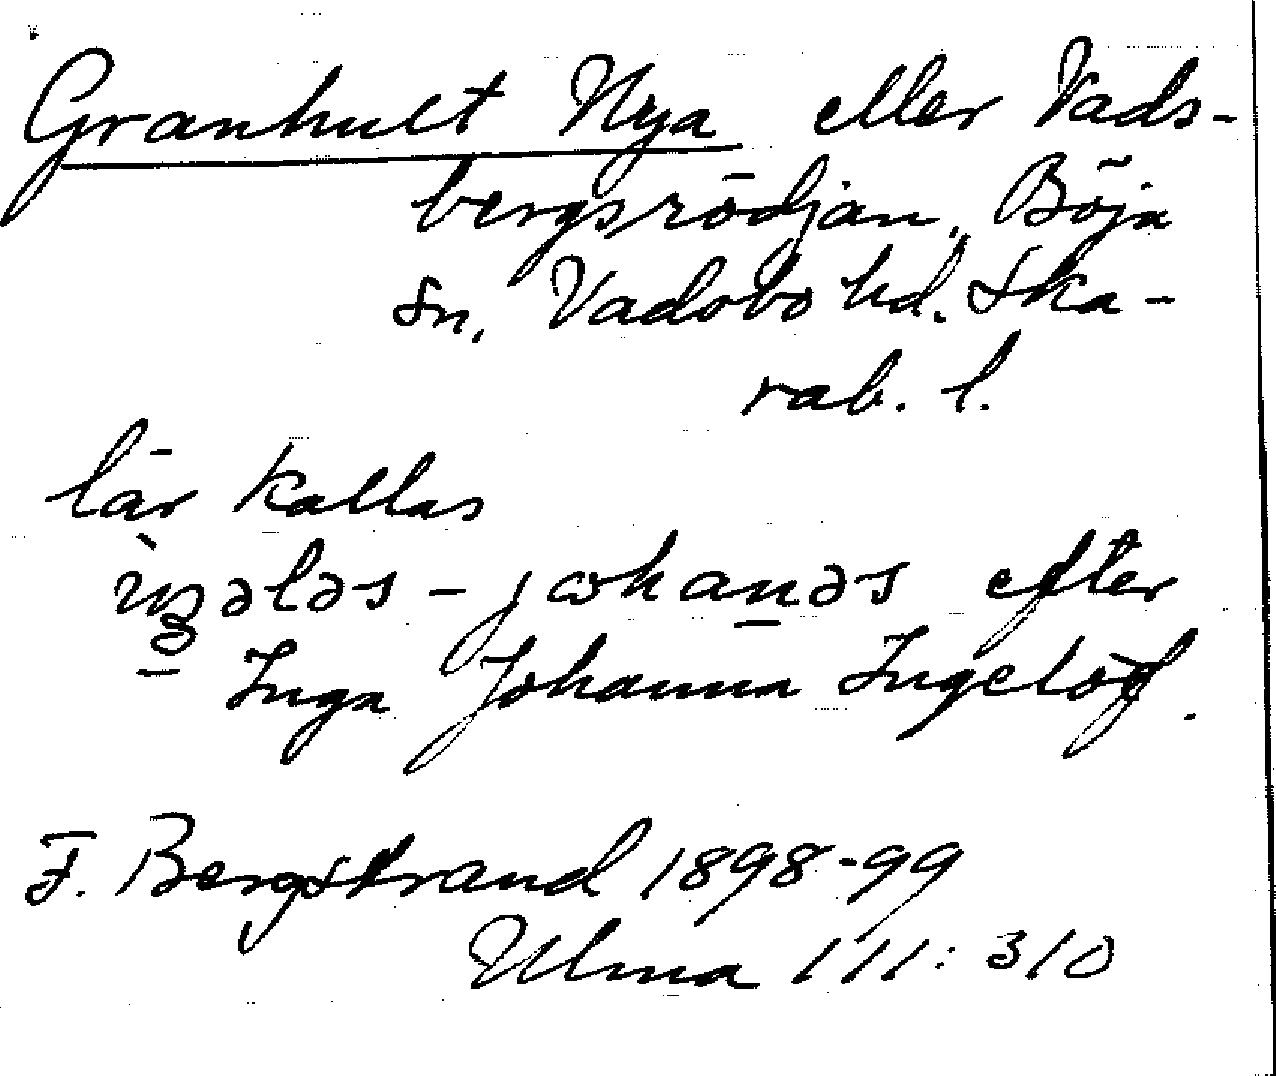 Granhult Nya eller Vads-
bergsrödjan, Böja
sn, Vadsbo hd. Ska-
rab. l.
lär kallas
ìŋələs-johanəs efter
Inga Johanna Ingelöf.
F. Bergstrand 1898-99
Ulma 111:310